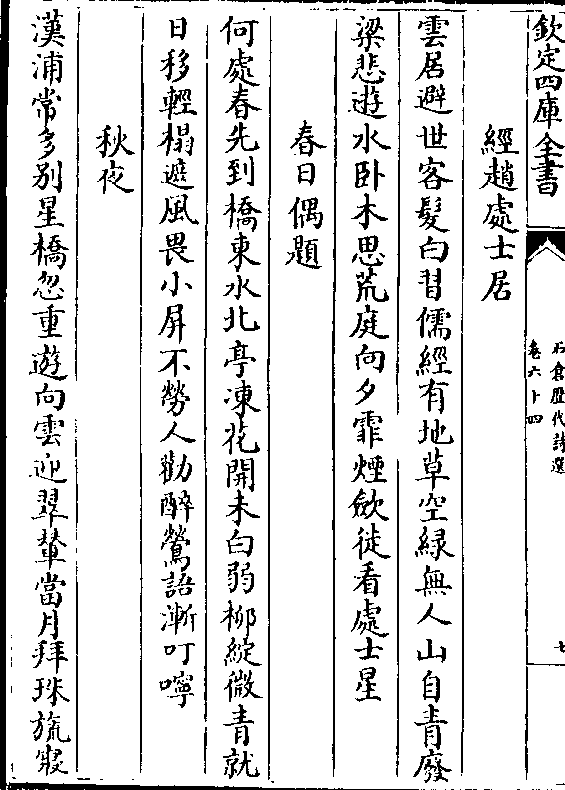 欽定四庫全書
石倉歴代詩選
卷六十四
七
經趙處士居
雲居避世客髮白習儒經有地草空緑無人山自青廢
梁悲逰水卧木思荒庭向夕霏煙歛徒看處士星
春日偶題
何處春先到橋東水北亭凍花開未白弱柳綻微青就
日移輕榻遮風畏小屏不勞人勸醉鶯語漸叮嚀
秋夜
漢浦常多别星橋忽重遊向雲迎翠輦當月拜珠旒寢